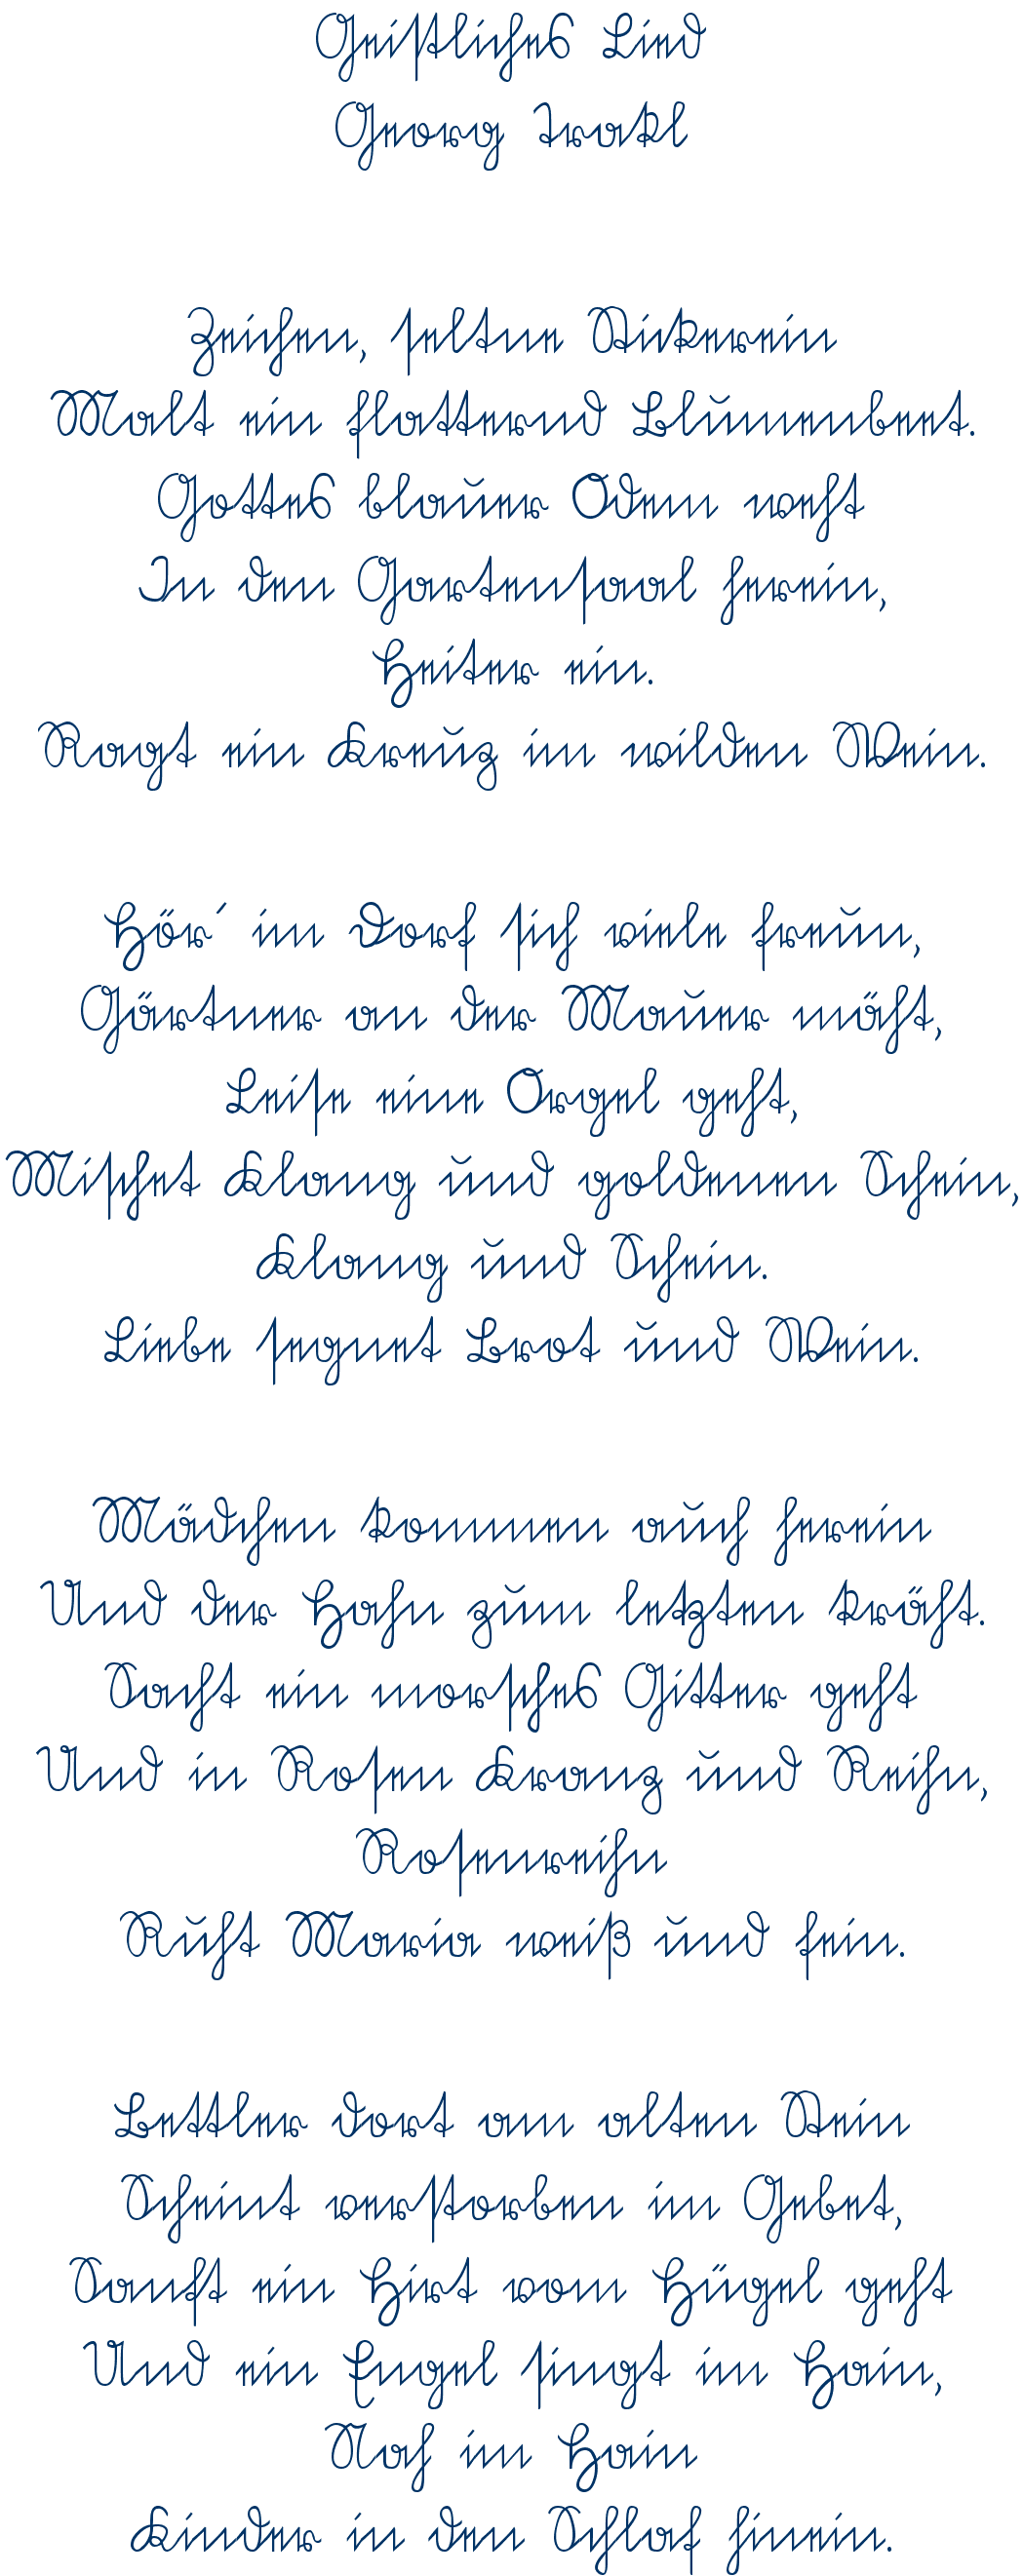 Geistliches Lied
Georg Trakl
Zeichen, seltne Stickerein
Malt ein flatternd Blumenbeet.
Gottes blauer Odem weht
In den Gartensaal herein,
Heiter ein.
Ragt ein Kreuz im wilden Wein.
Hör´ im Dorf sich viele freun,
Gärtner an der Mauer mäht,
Leise eine Orgel geht,
Mischet Klang und goldenen Schein,
Klang und Schein.
Liebe segnet Brot und Wein.
Mädchen kommen auch herein
Und der Hahn zum letzten kräht.
Sacht ein morsches Gitter geht
Und in Rosen Kranz und Reihn,
Rosenreihn
Ruht Maria weiß und fein.
Bettler dort am alten Stein
Scheint verstorben im Gebet,
Sanft ein Hirt vom Hügel geht
Und ein Engel singt im Hain,
Nah im Hain
Kinder in den Schlaf hinein.